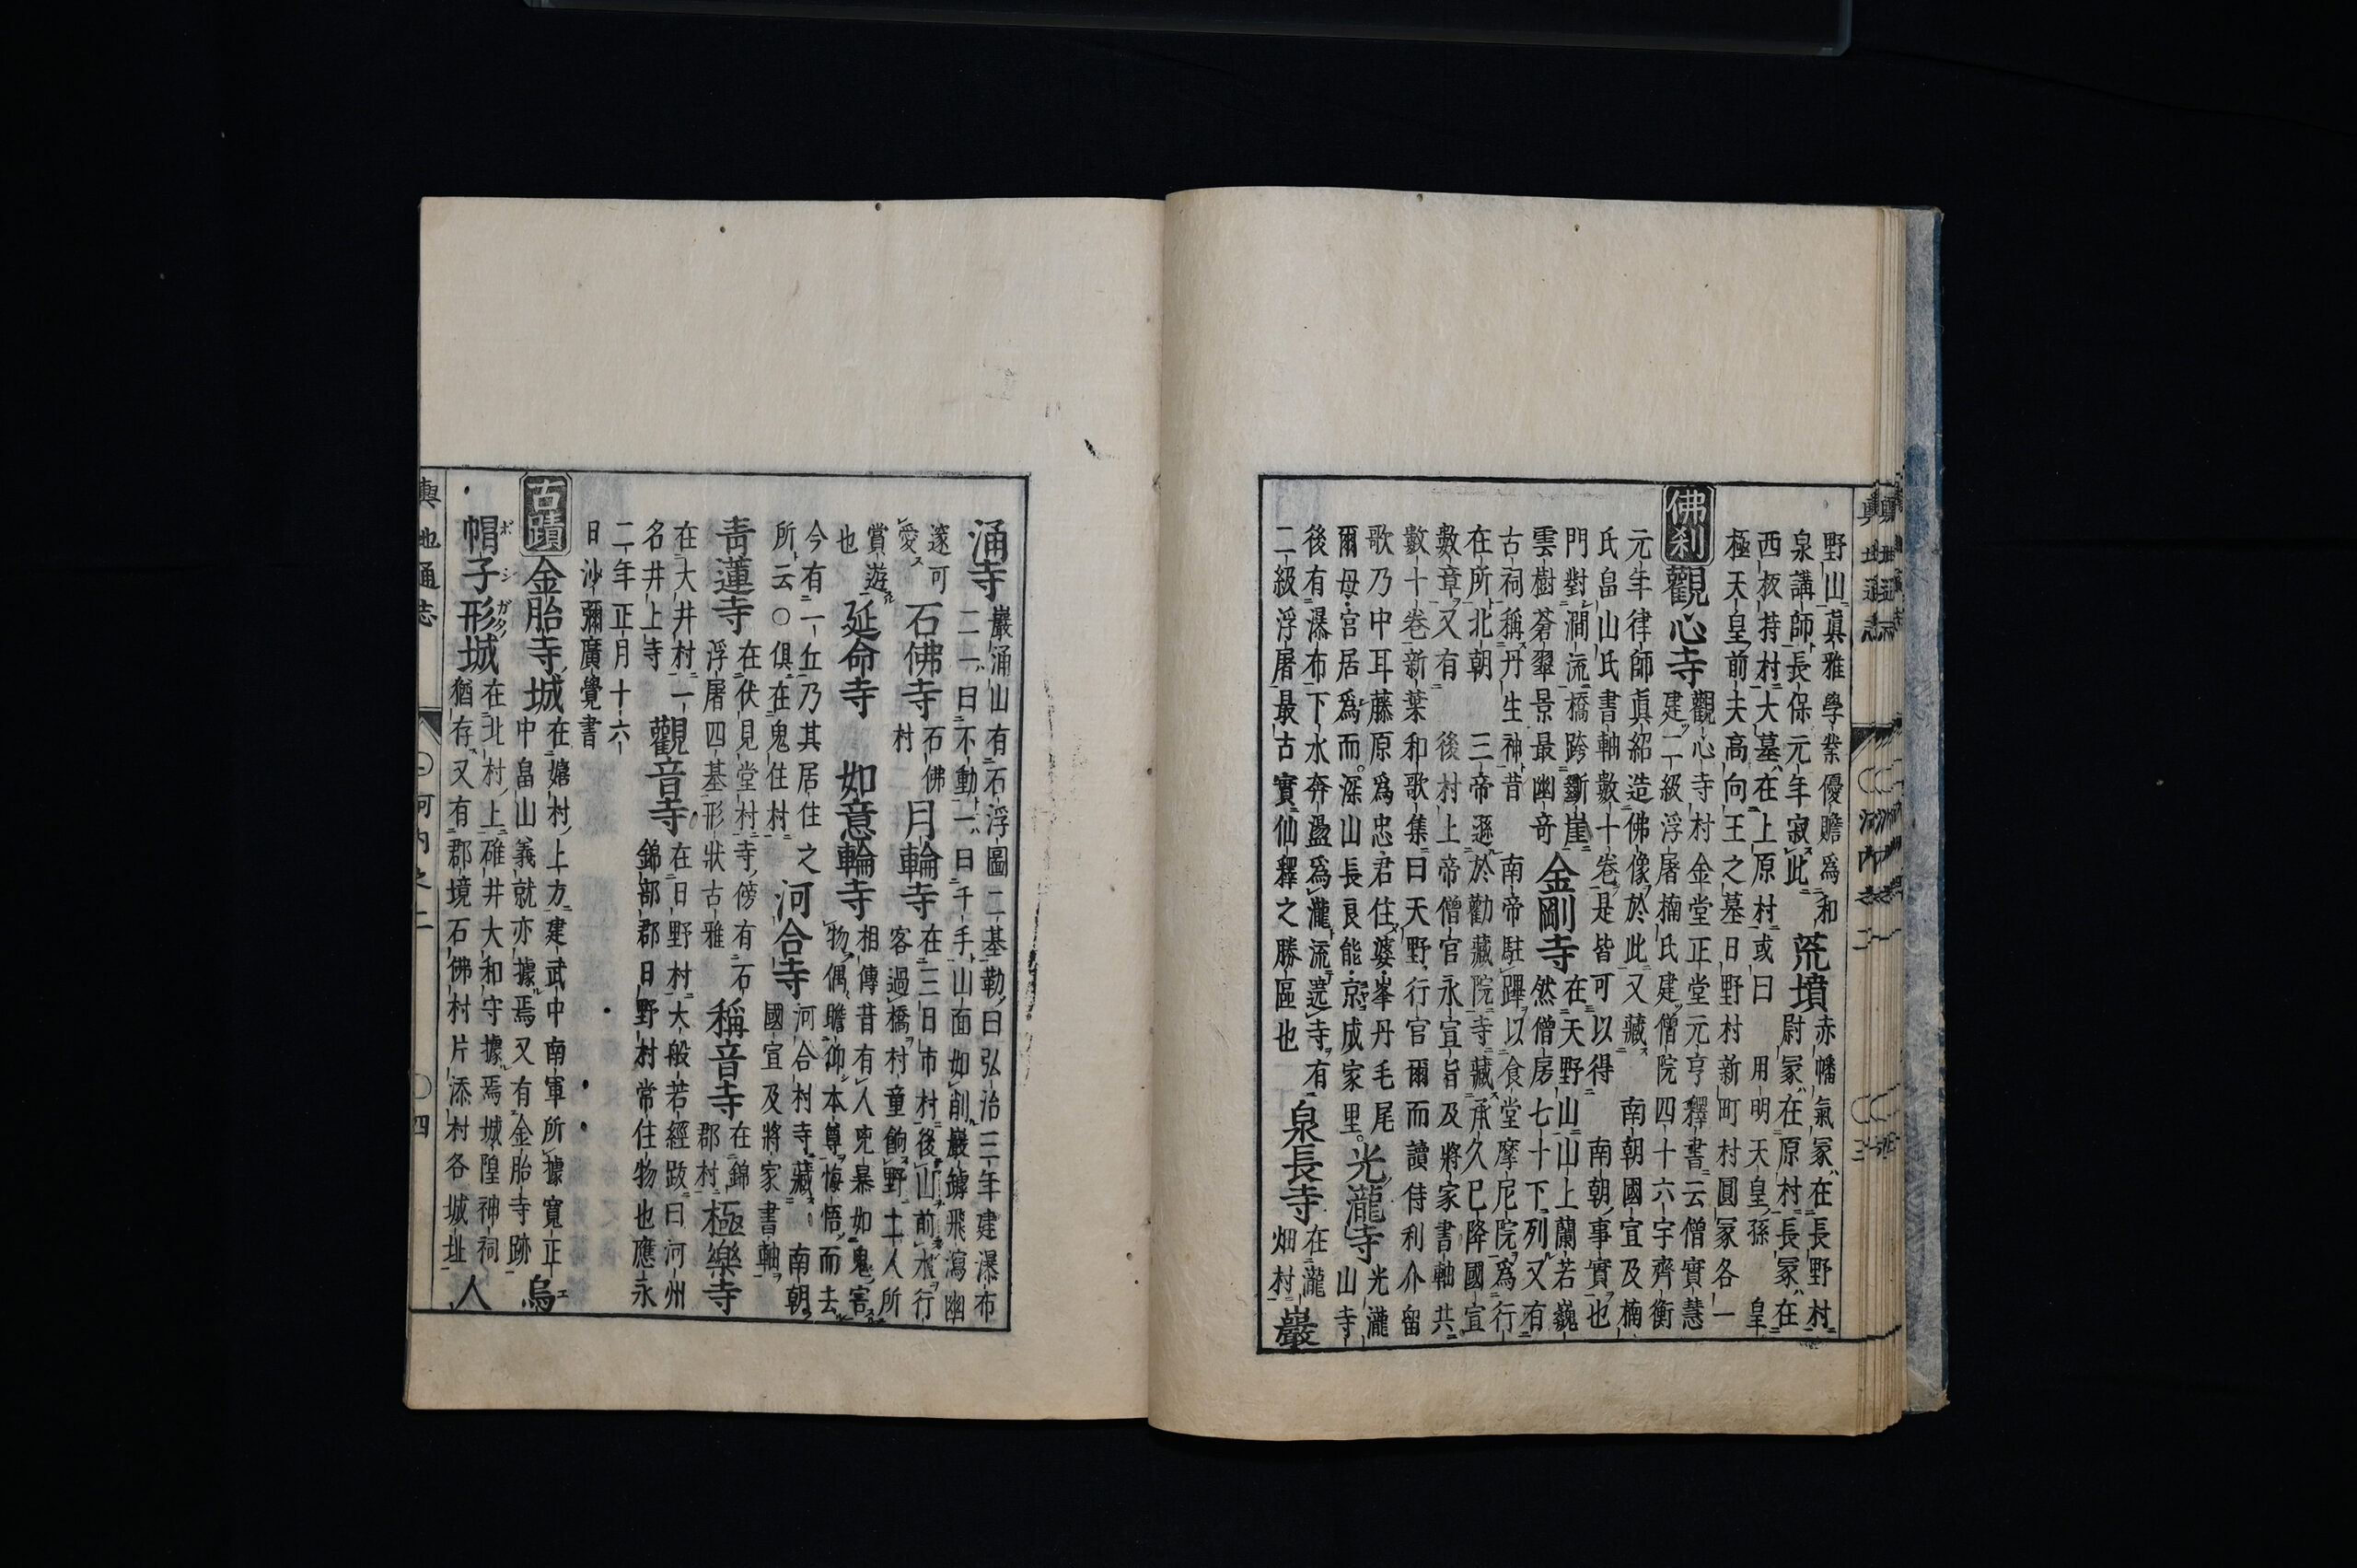 野山眞雅學業優贍爲和
泉講師長保元年寂此
荒墳
赤幡氣冢在長野村
尉冢在原村長冢在
西板持村大墓在上原村或曰用明天皇孫皇
極天皇前夫高向王之墓日野村新町村圓冢各一
佛刹
觀心寺
觀心寺村金堂正堂元亨釋書云僧實慧
建二級浮屠楠氏建僧院四十六宇齊衡
元年律師眞紹造佛像於此又藏南朝國宣及楠
氏畠山氏書軸數十卷是皆可以得南朝事實也
門對澗流橋跨斷崖
雲樹蒼翠景最幽奇
金剛寺
在天野山山上蘭若巍
然僧房七十下列又有
古祠稱丹生神昔南帝駐蹕以食堂摩尼院爲行
在所北朝三帝遜於勸藏院寺藏承久已降國宣
數章又有後村上帝僧官永宣旨及將家書軸共
數十卷新葉和歌集曰天野行宮爾而讀侍利介留
歌乃中耳藤原爲忠君住婆峯丹毛尾
爾母宮居爲而深山長良能京成家里
光瀧寺
光瀧
山寺
後有瀑布下水奔盪爲瀧流遶寺有
二級浮屠最古實仙釋之勝區也
泉長寺
在瀧
畑村
巖
涌寺
巖涌山有石浮圖二基勒曰弘治三年建瀑布
二一曰不動一曰千手山面如削巖罅飛瀉幽
邃可
愛
石佛寺
石佛
村
月輪寺
在三日市村後山前水行
客過橋村童餉野士人所
賞遊
也
延命寺
如意輪寺
相傳昔有人兇暴如鬼害
物偶瞻仰本尊悔悟而去
今有一丘乃其居住之
所云○俱在鬼住村
河合寺
河合村寺藏南朝
國宣及將家書軸
青蓮寺
在伏見堂村寺傍有石
浮屠四基形狀古雅
稱音寺
在錦
郡村
極樂寺
在大井村一
名井上寺
觀音寺
在日野村大般若經跋曰河州
錦部郡日野村常住物也應永
二年正月十六
日沙彌廣覺書
古蹟
金胎寺城
在嬉村上方建武中南軍所據寛正
中畠山義就亦據焉又有金胎寺跡
烏
帽子形城
在北村上碓井大和守據焉城隍神祠
猶存又有郡境石佛村片添村各城址
人
輿地通志
河內之二
四